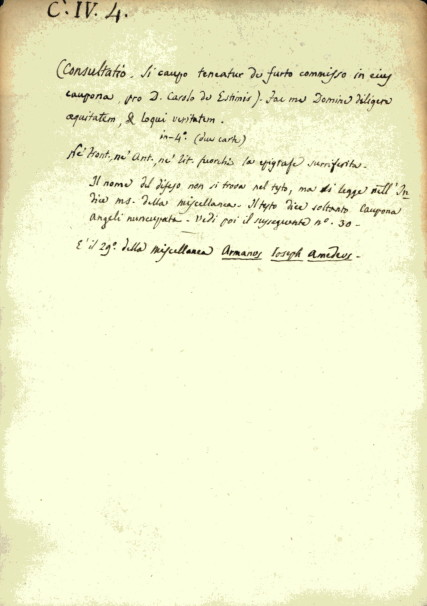 C. IV. 4.
(Consultatio. Si caupo teneatur de furto commisso in eius
caupona, pro D. Carolo de Estinis). Fac me Domine diligere
æquitatem, & loqui veritatem.
in-4.° (due carte)
Nè Front., nè Ant., nè Lit. fuorchè la epigrafe surriferita.
Il nome del difeso non si trova nel testo, ma si legge nell'In
dice ms. della miscellanea. Il testo dice soltanto Caupona
Angeli nuncupata. Vedi poi il susseguente n.° 30-
È il 29.° della miscellanea Armanos Ioseph Amedeus.